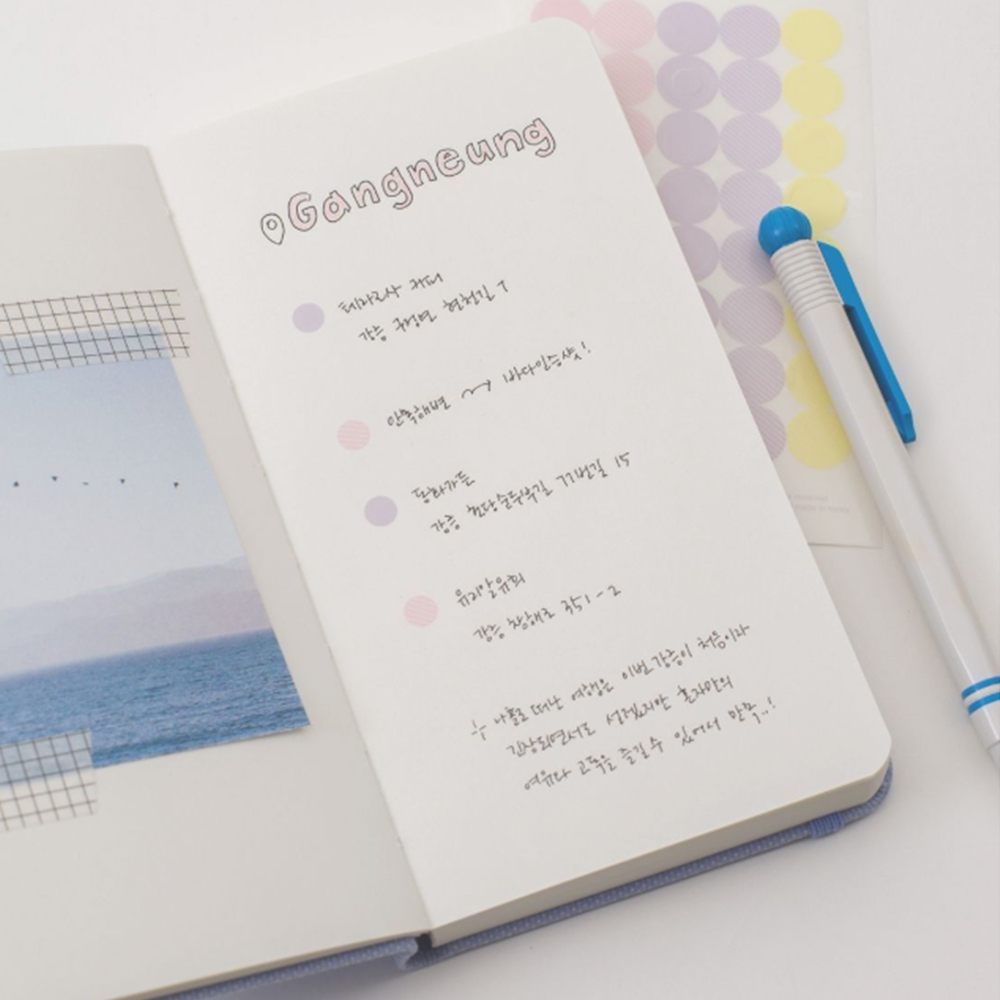 Gangneung
테라로사 커피
강릉 구정면 현천길 7
안목해변 바다인증샷!
동화가든
강릉 초당순두부길 77번길 15
유리알유희
강릉 창해로 351-2
나홀로 떠난 여행은 이번 강릉이 처음이라
긴장되면서도 설레었지만 혼자만의
여유와 고독을 즐길 수 있어서 만족..!